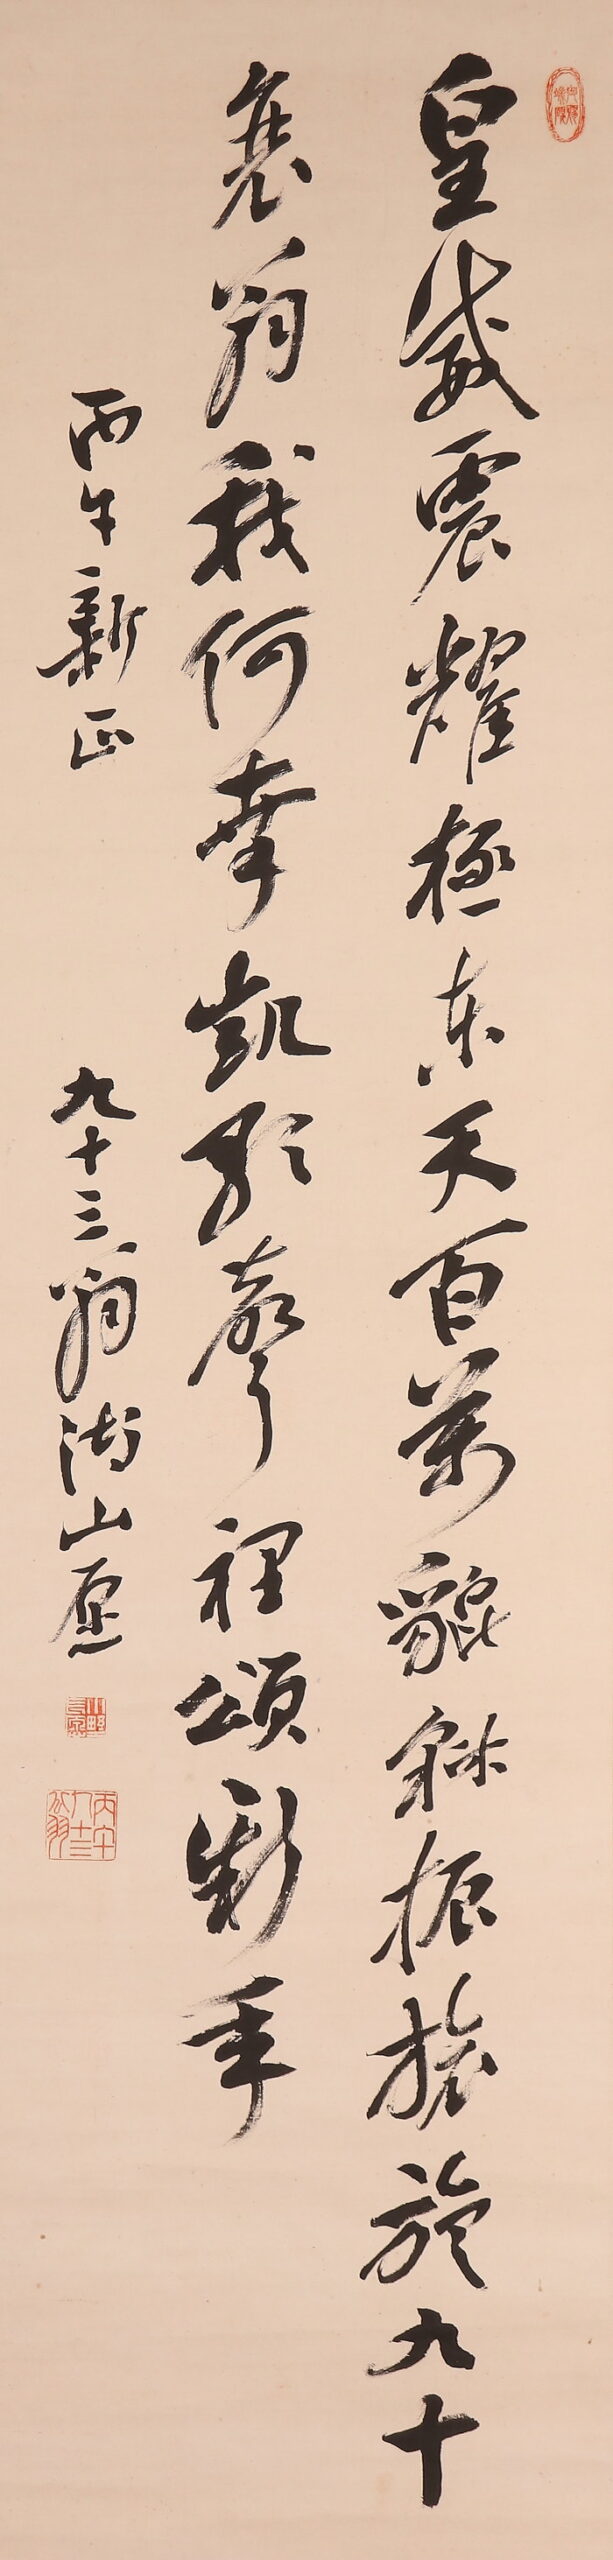 皇威震耀極東天百萬貔貅振旅旋九十
衰翁我何幸凱歌聲裡頌新年
丙午新正
九十三翁湖山愿
丙午九十三翁